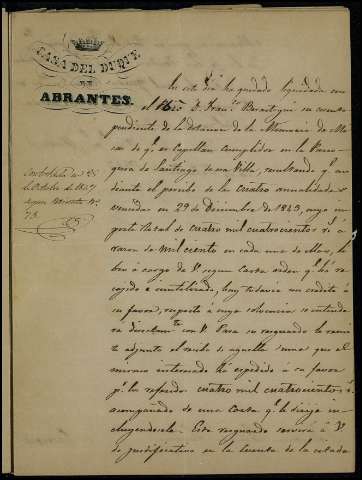 CASA DEL DUQUE
DE
ABRANTES.
En este dia ha quedado liquidada con
el D. Fran.º su cuenta
pendiente de la dotacion de la Memoria de
de q.e es Capellan cumplidor en la Parro-
quia de Santiago de esa Villa, resultando q.e
el percibo de las cuatro anualidades
vencidas en 29 de Diciembre de 1849, cuyo im-
porte total de cuatro mil cuatrocientos r.s a
razon de mil ciento en cada una de ellas,
á cargo de V. segun Carta orden q.e he re-
cojido é inutilizado, hay todavia un credito á
su favor, respecto á cuya solvencia se entende-
ra directam.te con V. Para su resguardo le remi-
to adjunto el recibo de aquella suma que el
mismo interesado há expedido á su favor
p.r los referidos cuatro mil cuatrocientos r.s
acompañado de una Carta q.e le dirije in-
cluyendosela. Este resguardo servirá á V.
de justificativo en la Cuenta de la citada
Contestada en 25
de Octubre de 1857
segun minuta N.º
73.